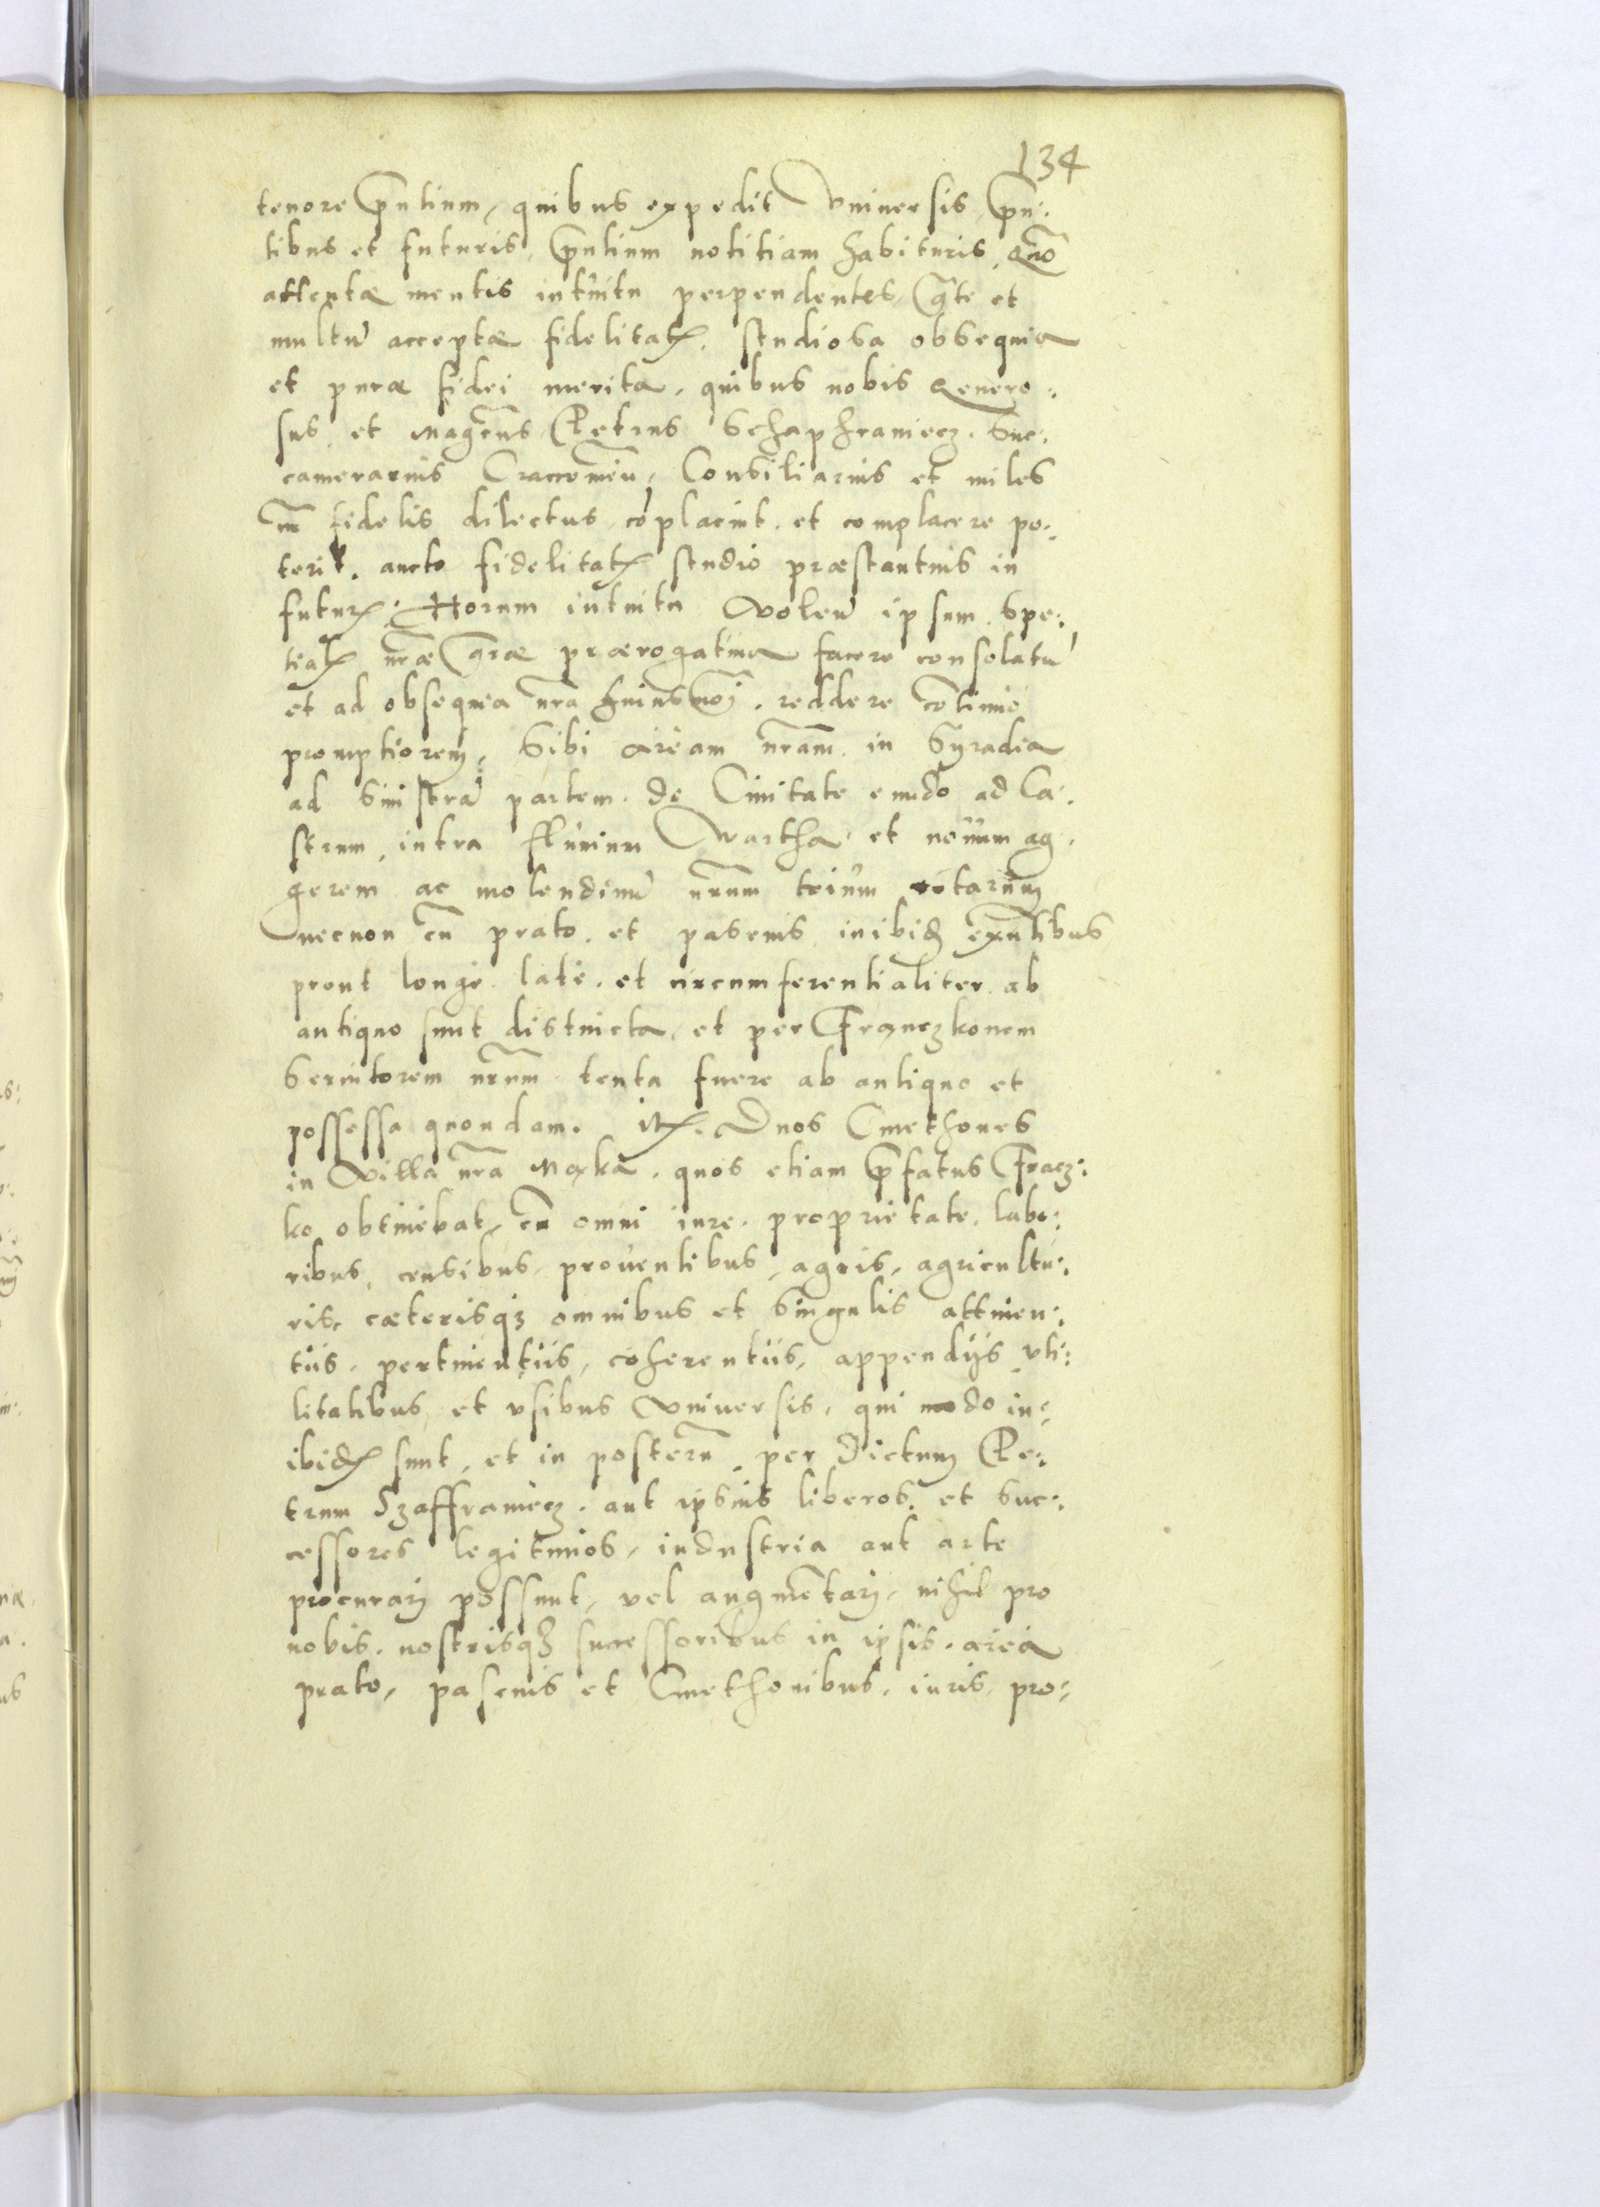 134
tenore p̄ntium, quibus expedit Vniuersis, p̄n:
tibus et futuris, p̄ntium notitiam habituris, Quō
attenta mentis intuitu perpendentes, g̃te et
multū acceptæ fidelitatȩ, studiosa obsequia
et puræ fidei merita, quibus nobis Genero:
sus et Mag̃cus Petrus Schaphraniecz, Suc:
camerarius Cracouien̄, Consiliarius et miles
nr̄ fidelis dilectus, cōplacuit, et complacere po:
terit, aucto fidelitatȩ studio præstantius in
futurȩ: Horum intuitu volen̄ ipsum, Spe:
tialȩ nr̄æ gr̄æ prærogatiua facere consolatū
et ad obsequia nr̄a huiusmōi, reddere cōtinuo
promptiorem, Sibi Aream nr̄am in Syradia
ad sinistrā partem, de Ciuitate eundo ad Ca:
strum, intra fluuium Wartha, et nouum ag:
gerem ac molendinū nr̄um trium rotarum
necnon cū prato, et pascuis, inibid̃ exn̄tibus
prout longe, late, et circumferentialiter ab
antiquo sunt distincta, et per Franczkonem
Seruitorem nr̄um tenta fuere ab antiquo et
possessa quondam. Itȩ. Duos Cmethones
in Villa nr̄a Męka, quos etiam p̄fatus Fracz:
ko obtinebat, cū omni iure, proprietate, labo:
ribus, censibus, prouentibus, agris, agricultu:
ris, cæterisq3 omnibus et singulis attinen:
tiis, pertinentiis, coherentiis, appendijs vti:
litatibus, et vsibus Vniuersis, qui modo in:
ibidȩ sunt, et in posterū, per dictum Pe:
trum Szaffraniecz, aut ipsius liberos, et suc:
cessores legitimos, industria aut arte
procurarj possunt, vel augmētarj, nihil pro
nobis, nostrisq3 successoribus in ipsis, area
prato, pascuis et Cmethonibus, iuris, pro: